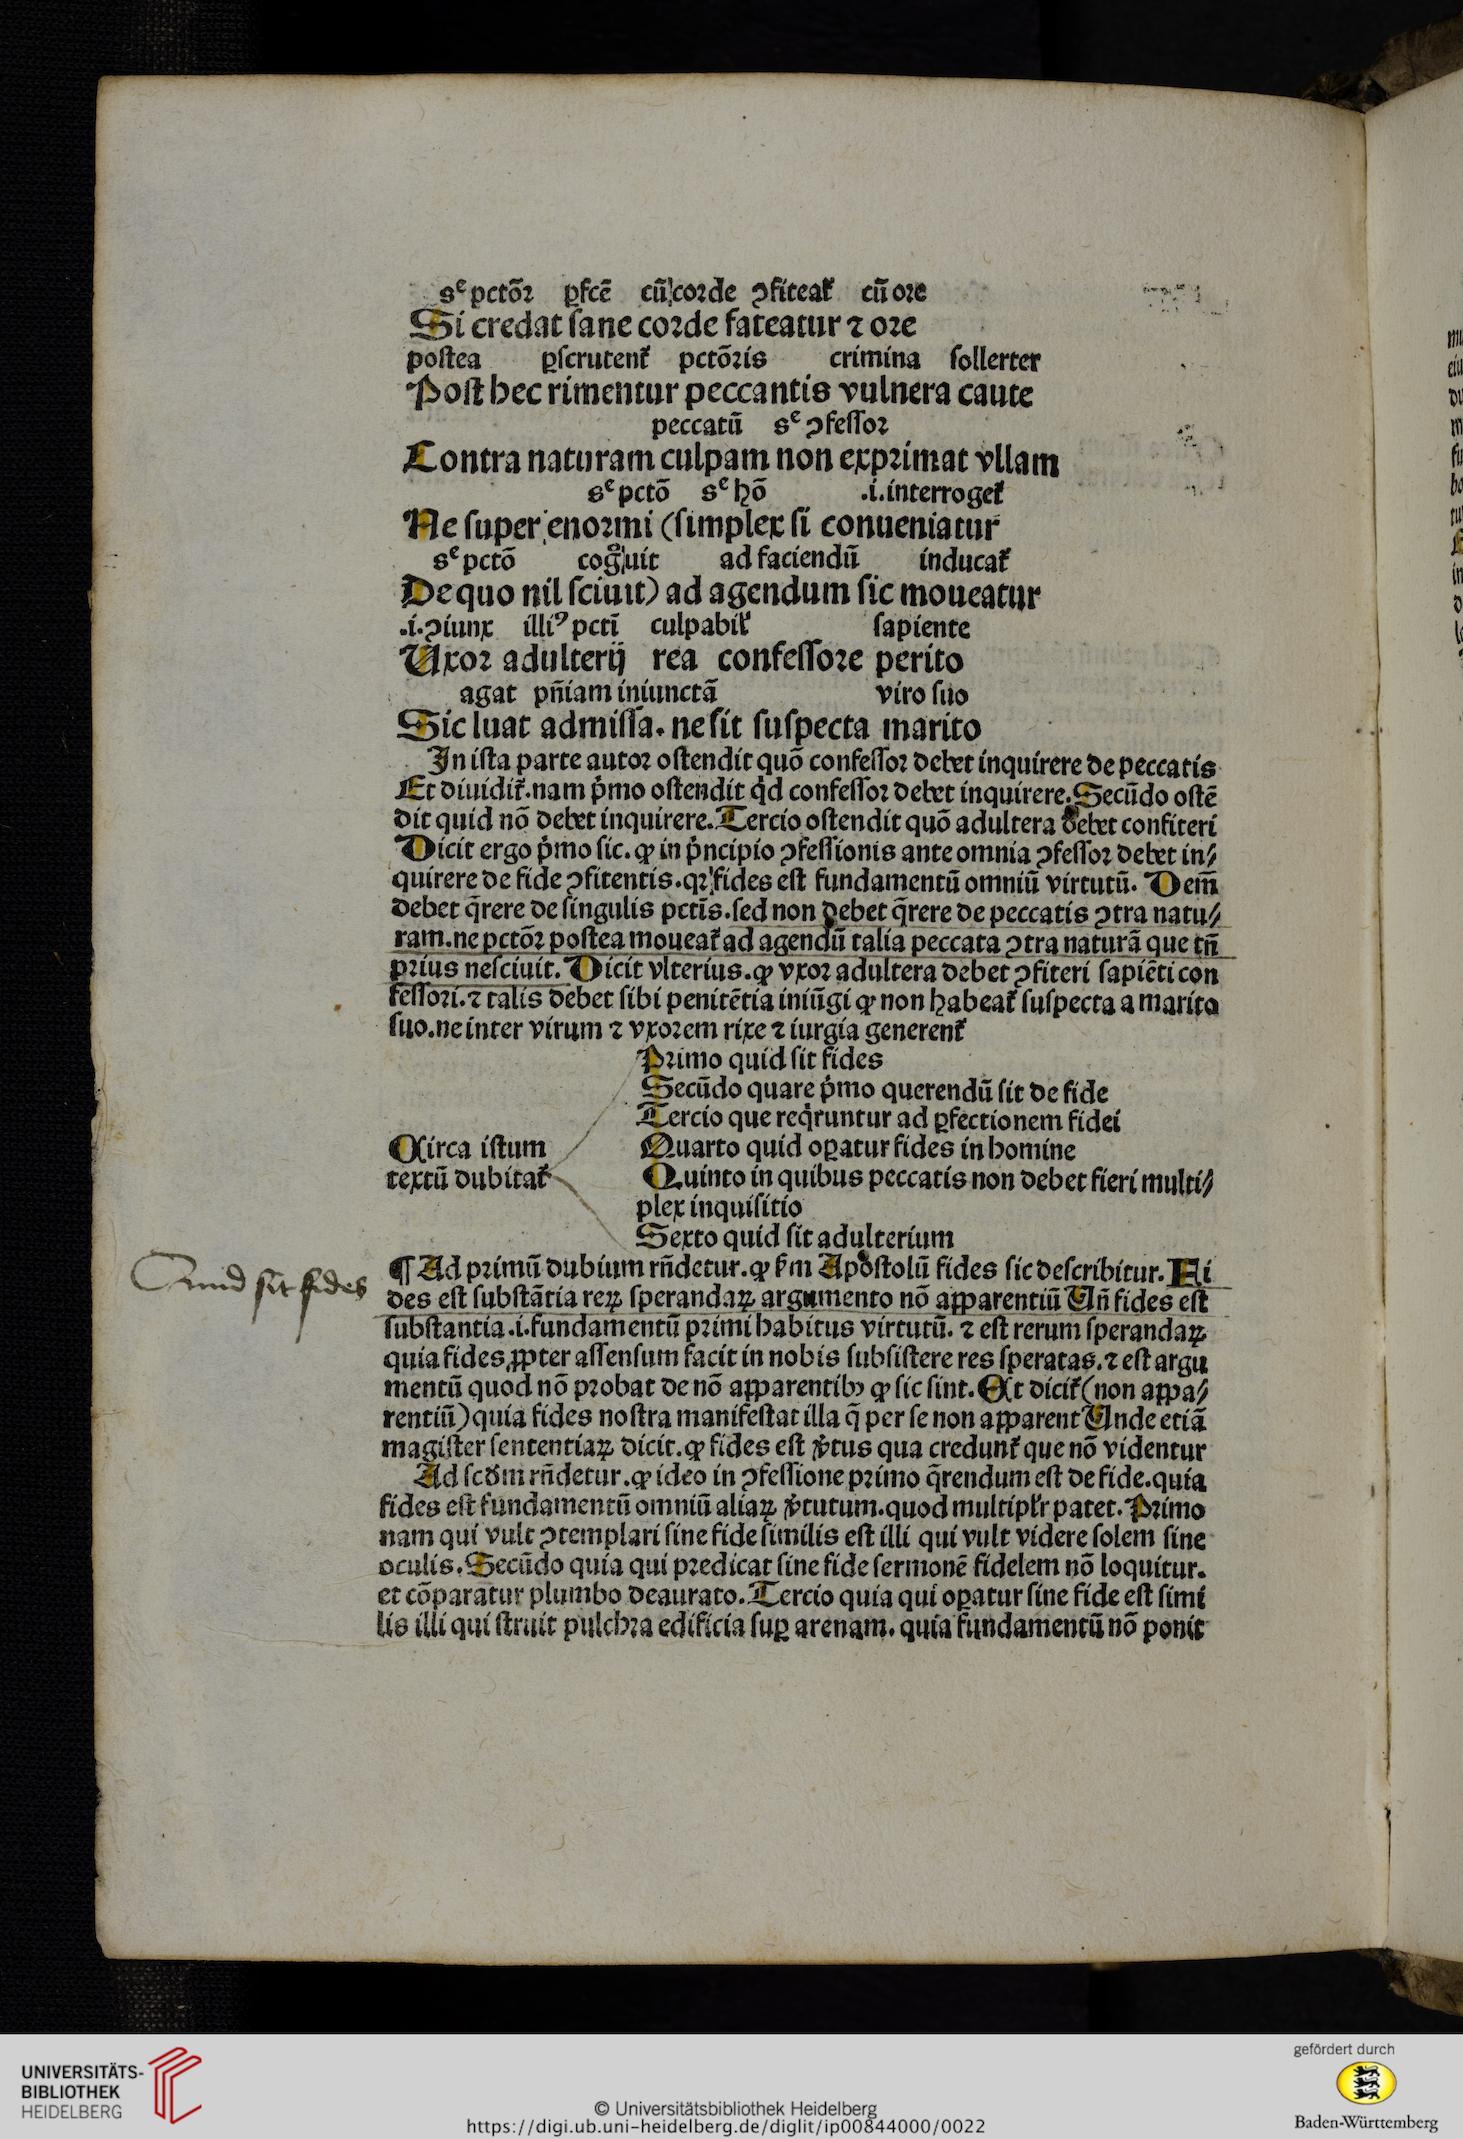 sᵉ pctōꝛ ꝑfcē cū corde ꝯfiteat᷑ cū ore
Si credat ſane corde fateatur ⁊ ore
poſtea ꝑſcrutent᷑ pctōꝛis crimina ſollerter
Poſt hec rimentur peccantis vulnera caute
peccatū sᵉ ꝯfeſſoꝛ
Contra naturam culpam non exprimat vllam
sᵉ pctō sᵉ hō .i. interroget᷑
Ne ſuper enoꝛmi (ſimplex ſi conueniatur
sᵉ pctō cogͦuit ad faciendū inducat᷑
De quo nil ſciuit) ad agendum ſic moueatur
.i. ꝯiunx illiꝰ pcti̅ culpabil᷑ ſapiente
Uxoꝛ adulterij rea confeſſoꝛe perito
agat pn̄iam iniunctā viro ſuo
Sic luat admiſſa. ne ſit ſuſpecta marito
In iſta parte autoꝛ oſtendit quō confeſſoꝛ debet inquirere de peccatis
Et diuidit᷑. nam pͥmo oſtendit qͥd confeſſoꝛ debet inquirere. Secūdo oſtē
dit quid nō debet inquirere. Tercio oſtendit quō adultera debet confiteri
Dicit ergo pͥmo ſic. ꝙ in pͥncipio ꝯfeſſionis ante omnia ꝯfeſſoꝛ debet in⸗
quirere de fide ꝯfitentis. qꝛ fides eſt fundamentū omniū virtutū. Dem̄
debet q̄rere de ſingulis pctīs. ſed non debet q̄rere de peccatis ꝯtra natu⸗
ram. ne pctōꝛ poſtea moueat᷑ ad agendū talia peccata ꝯtra naturā que tn̄
prius neſciuit. Dicit vlterius. ꝙ vxoꝛ adultera debet ꝯfiteri ſapiēti con
feſſoꝛi. ⁊ talis debet ſibi penitētia iniūgi ꝙ non habeat᷑ ſuſpecta a marito
ſuo. ne inter virum ⁊ vxoꝛem rixe ⁊ iurgia generent᷑
Pꝛimo quid ſit fides
Secūdo quare pͥmo querendū ſit de fide
Tercio que reqͥruntur ad ꝑfectionem fidei
Circa iſtum Quarto quid oꝑatur fides in homine
textū dubitat᷑ Quinto in quibus peccatis non debet fieri multi⸗
plex inquiſitio
Sexto quid ſit adulterium
Quid ſit fides
¶ Ad pꝛimū dubium rn̄detur. ꝙ ẜm Apoſtolū fides ſic deſcribitur. Fi
des eſt ſubſtātia reꝝ ſperandaꝝ argumento nō apparentiū Un̄ fides eſt
ſubſtantia .i. fundamentū pꝛimi habitus virtutū. ⁊ eſt rerum ſperandaꝝ
quia fides ꝓpter aſſenſum facit in nobis ſubſiſtere res ſperatas. ⁊ eſt argu
mentū quod nō pꝛobat de nō apparentibꝫ ꝙ ſic ſint. Et dicit᷑ (non appa⸗
rentiū) quia fides noſtra manifeſtat illa q̄ per ſe non apparent Unde etiā
magiſter ſententiaꝝ dicit. ꝙ fides eſt v̓tus qua credunt᷑ que nō videntur
Ad ſcdm rn̄detur. ꝙ ideo in ꝯfeſſione pꝛimo q̄rendum eſt de fide. quia
fides eſt fundamentū omniū aliaꝝ v̓tutum. quod multipl᷑r patet. Pꝛimo
nam qui vult ꝯtemplari ſine fide ſimilis eſt illi qui vult videre ſolem ſine
oculis. Secūdo quia qui pꝛedicat ſine fide ſermonē fidelem nō loquitur.
et cōparatur plumbo deaurato. Tercio quia qui oꝑatur ſine fide eſt ſimi
lis illi qui ſtruit pulchꝛa edificia ſuꝑ arenam. quia fundamentū nō ponit
UNIVERSITÄTS-
BIBLIOTHEK
HEIDELBERG
© Universitätsbibliothek Heidelberg
https://digi.ub.uni-heidelberg.de/diglit/ip00844000/0022
gefördert durch
Baden-Württemberg